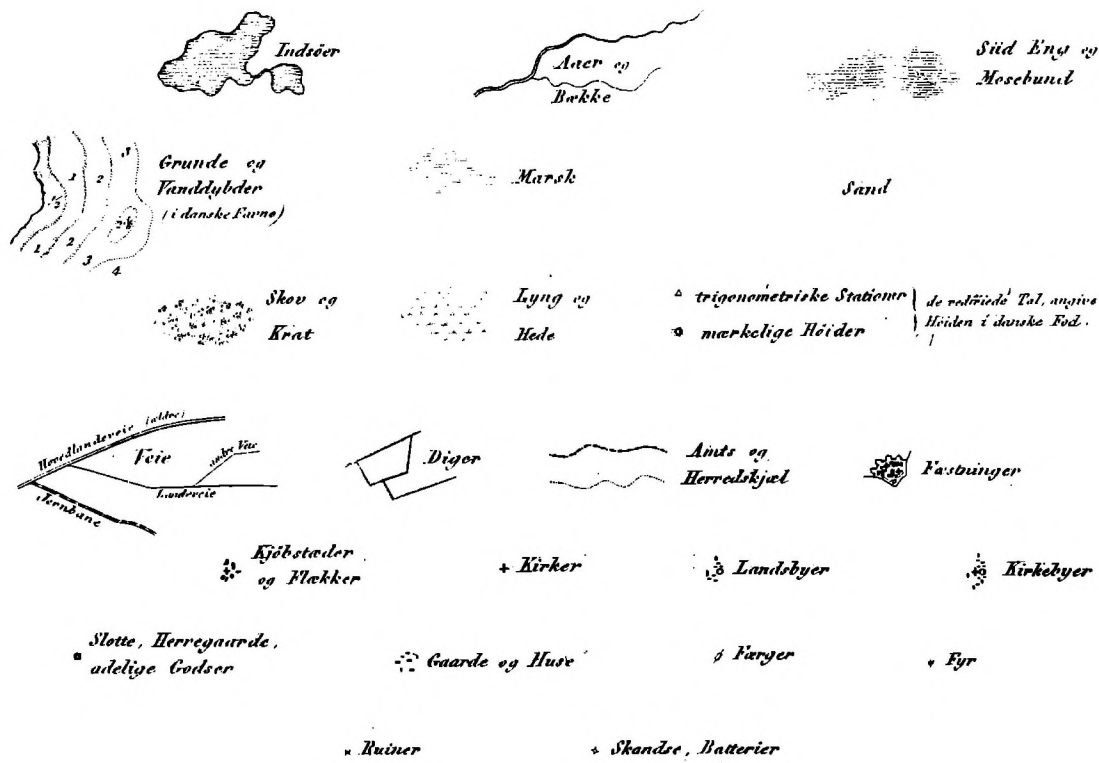 Indsöer
Aaer og
Bække
Siid Eng og
Mosebund
Grunde og
Vanddybder
(i danske Favne)
3
1
2
½
1
2
3
4
Marsk
Sand
Skov og
Krat
Lyng og
Hede
trigonometriske Stationer
mærkelige Höider
de vedföiede Tal, angive
Höiden i danske Fod.
Hovedlandeveie (ældre)
Veie
andre Veie
Landeveie
Jernbane
Diger
Amts og
Herredskjæl
Fæstninger
Kjöbstæder
og Flækker
Kirker
Landsbyer
Kirkebyer
Slotte, Herregaarde,
adelige Godser
Gaarde og Huse
Færger
Fyr
Ruiner
Skandse, Batterier